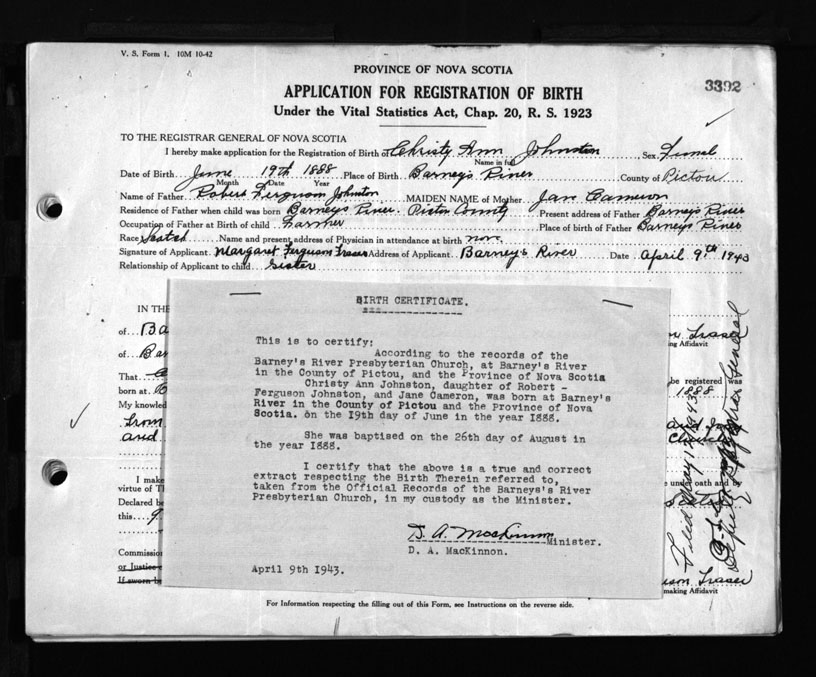 V. S. Form 1. 10M 10-42
PROVINCE OF NOVA SCOTIA
3392
APPLICATION FOR REGISTRATION OF BIRTH
Under the Vital Statistics Act, Chap. 20, R. S. 1923
TO THE REGISTRAR GENERAL OF NOVA SCOTIA
I hereby make application for the Registration of Birth of Christy Ann Johnston Sex Femal
Name in full
Date of Birth June 19th 1888 Place of Birth Barney's River County of Pictou
Month Date Year
Name of Father Robert Ferguson Johnston MAIDEN NAME of Mother Jane Cameron
Residence of Father when child was born Barney's River Pictou County Present address of Father Barney's River
Occupation of Father at Birth of child Farmer Place of birth of Father Barney's River
Race Scotch Name and present address of Physician in attendance at birth none
Signature of Applicant Margaret Ferguson Fraser Address of Applicant Barney's River Date April 9th 1943
Relationship of Applicant to child Sister
IN THE
of Ba
of Bar
That
born at
My knowled
from
and
I make
virtue of T
Declared be
this 9
Commission
or Justice
If sworn b
BIRTH CERTIFICATE.
This is to certify:
According to the records of the
Barney's River Presbyterian Church, at Barney's River
in the County of Pictou, and the Province of Nova Scotia
Christy Ann Johnston, daughter of Robert -
Ferguson Johnston, and Jane Cameron, was born at Barney's
River in the County of Pictou and the Province of Nova
Scotia. on the 19th day of June in the year 1888.
She was baptised on the 26th day of August in
the year 1888.
I certify that the above is a true and correct
extract respecting the Birth Therein referred to,
taken from the Official Records of the Barneys's River
Presbyterian Church, in my custody as the Minister.
D. A. MacKinnon Minister.
D. A. MacKinnon.
April 9th 1943.
Fraser
ing Affidavit
be registered was
1888
Church
e under oath and by
son Fraser
making Affidavit
Filed May 12 1943
Deputy Registrar General
For Information respecting the filling out of this Form, see Instructions on the reverse side.